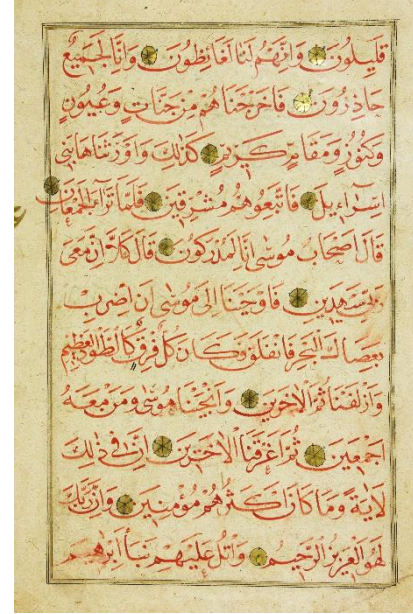 قَلِيلُونَ وَاِنَّهُمْ لَنَا لَغَائِظُونَ وَاِنَّا لَجَمِيعٌ
حَاذِرُونَ فَاَخْرَجْنَاهُمْ مِنْ جَنَّاتٍ وَعُيُونٍ
وَكُنُوزٍ وَمَقَامٍ كَرِيمٍ كَذٰلِكَ وَاَوْرَثْنَاهَا بَنِي
اِسْرَاءِيلَ فَاَتْبَعُوهُمْ مُشْرِقِينَ فَلَمَّا تَرَاءَ الْجَمْعَانِ
قَالَ اَصْحَابُ مُوسٰى اِنَّا لَمُدْرَكُونَ قَالَ كَلَّا اِنَّ مَعِيَ
رَبِّي سَيَهْدِينِ فَاَوْحَيْنَا اِلٰى مُوسٰى اَنِ اضْرِبْ
بِعَصَاكَ الْبَحْرَ فَانْفَلَقَ فَكَانَ كُلُّ فِرْقٍ كَالطَّوْدِ الْعَظِيمِ
وَاَزْلَفْنَا ثَمَّ الْاٰخَرِينَ وَاَنْجَيْنَا مُوسٰى وَمَنْ مَعَهُ
اَجْمَعِينَ ثُمَّ اَغْرَقْنَا الْاٰخَرِينَ اِنَّ فِي ذٰلِكَ
لَاٰيَةً وَمَا كَانَ اَكْثَرُهُمْ مُؤْمِنِينَ وَاِنَّ رَبَّكَ
لَهُوَ الْعَزِيزُ الرَّحِيمُ وَاتْلُ عَلَيْهِمْ نَبَاَ اِبْرٰهِيمَ